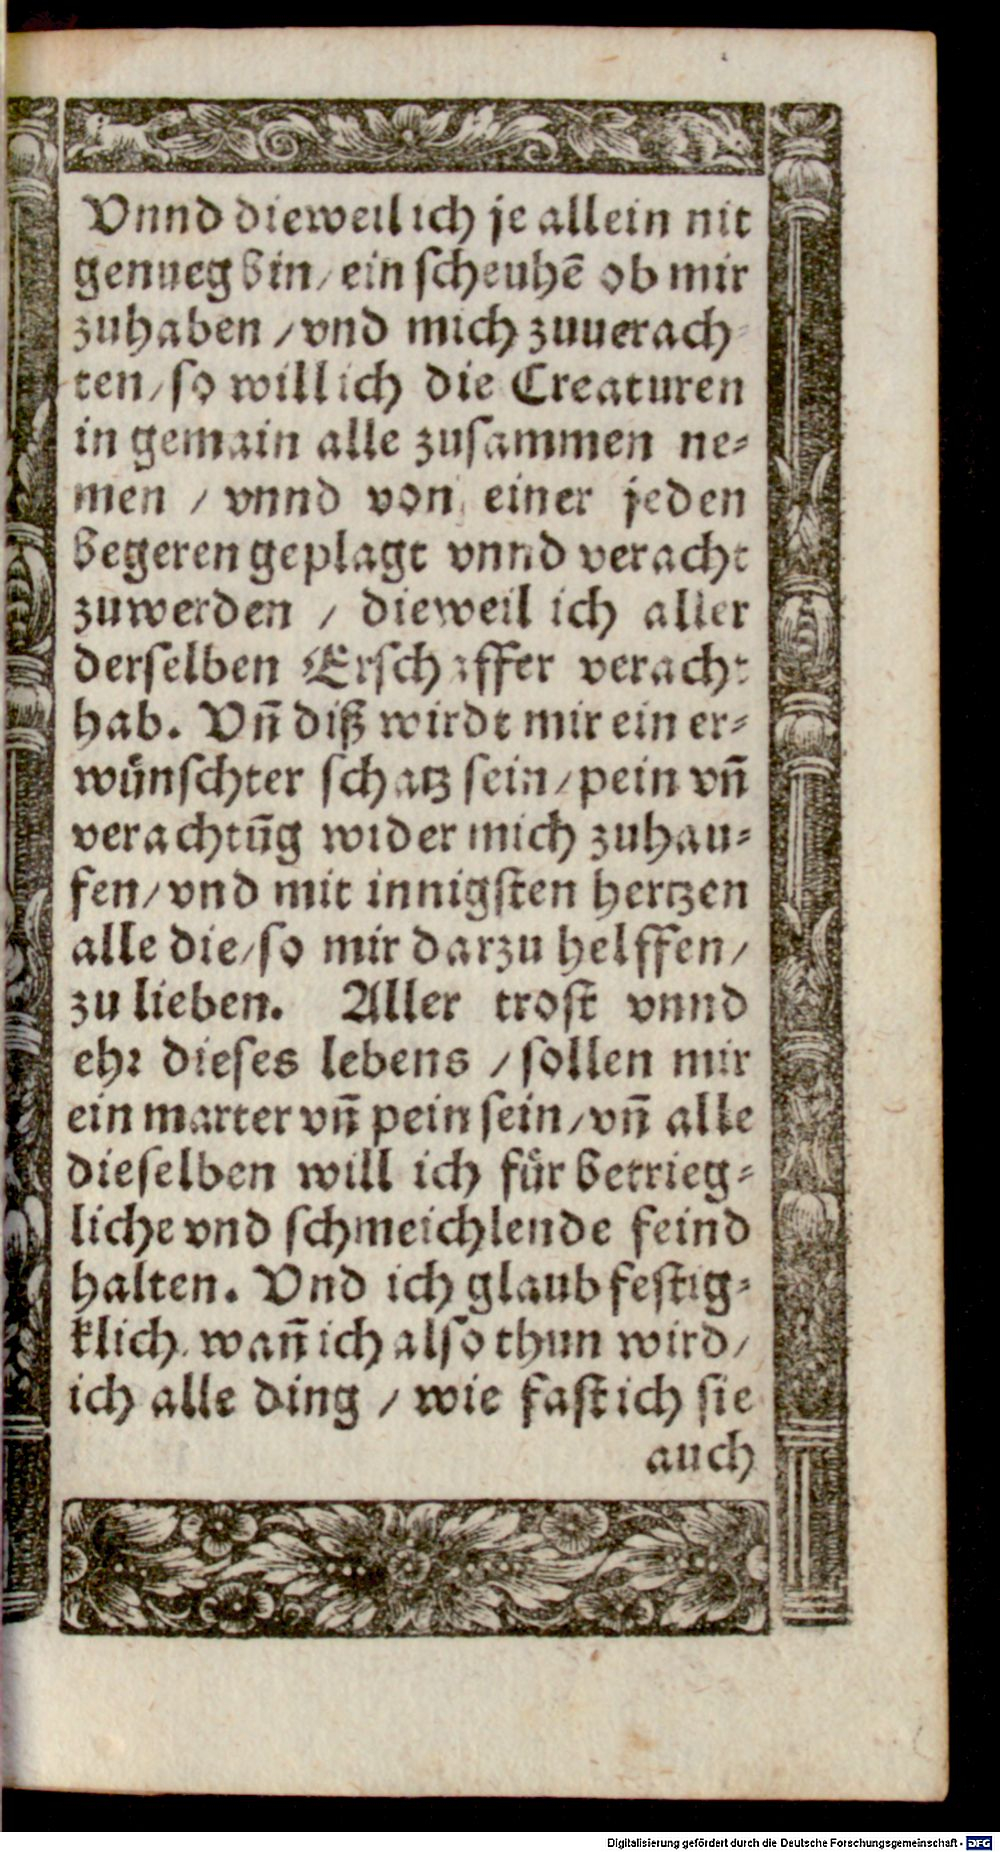 Vnnd dieweil ich je allein nit
genueg bin / ein scheuhē ob mir
zuhaben / vnd mich zuuerach-
ten / so will ich die Creaturen
in gemain alle zusammen ne-
men / vnnd von einer jeden
begeren geplagt vnnd veracht
zuwerden / dieweil ich aller
derselben Erschaffer veracht
hab. Vñ diß wirdt mir ein er-
wünschter schatz sein / pein vñ
verachtūg wider mich zuhau-
fen / vnd mit innigsten hertzen
alle die / so mir darzu helffen /
zu lieben. Aller trost vnnd
ehr dieses lebens / sollen mir
ein marter vñ pein sein / vñ alle
dieselben will ich für betrieg-
liche vnd schmeichlende feind
halten. Vnd ich glaub festig-
klich, wañ ich also thun wird /
ich alle ding / wie fast ich sie
auch
Digitalisierung gefördert durch die Deutsche Forschungsgemeinschaft - DFG